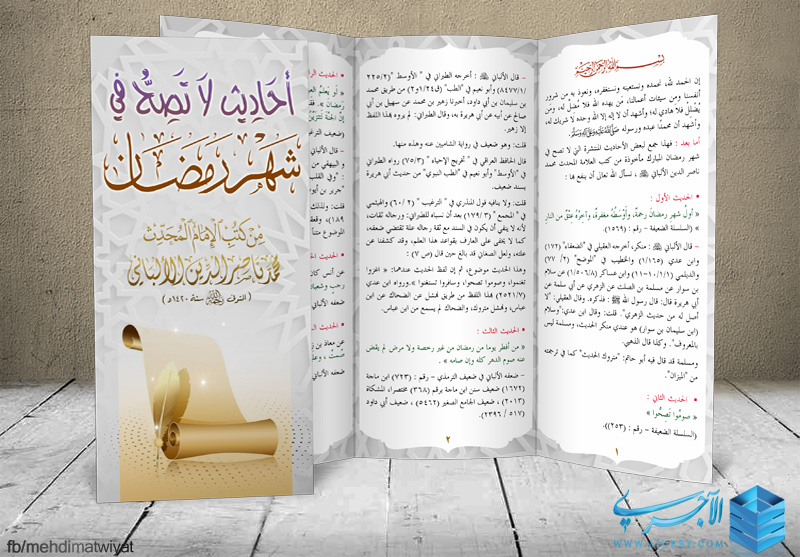 أحاديث لا تصح في
شهر رمضان
من كتب الإمام المحدث
محمد ناصر الدين الألباني
(المتوفى رحمه الله سنة ١٤٢٠هـ)
بسم الله الرحمن الرحيم
إن الحمد لله، نحمده ونستعينه ونستغفره، ونعوذ به من شرور
أنفسنا ومن سيئات أعمالنا، من يهده الله فلا مُضل له، ومن
يُضلل فلا هادي له، وأشهد أن لا إله إلا الله وحده لا شريك له،
وأشهد أن محمدًا عبده ورسوله ﷺ
أما بعد : فهذا جمع لبعض الأحاديث المنتشرة التي لا تصح في
شهر رمضان المبارك مأخوذة من كتب العلامة المحدث محمد
ناصر الدين الألباني ، نسأل الله تعالى أن ينفع بها :
• الحديث الأول :
« أول شهر رمضان رحمة، وأوْسَطُه مغفرة، وآخرُهُ عِتْقٌ من النار
» (السلسلة الضعيفة - رقم : (١٥٦٩)
– قال الألباني : منكر، أخرجه العقيلي في "الضعفاء" (١٧٢)
وابن عدي (١/١٦٥) والخطيب في "الموضح" (٢/ ٧٧)
والديلمي (١/١/١٠-١١) وابن عساكر (١/٥٠٦/٨) عن سلام
بن سوار عن مسلمة بن الصلت عن الزهري عن أبي سلمة عن
أبي هريرة قال: قال رسول الله ﷺ : فذكره. وقال العقيلي: "لا
أصل له من حديث الزهري". قلت: وقال ابن عدي:"وسلام
(ابن سليمان بن سوار) هو عندي منكر الحديث، ومسلمة ليس
بالمعروف". وكذا قال الذهبي.
ومسلمة قد قال فيه أبو حاتم: "متروك الحديث" كما في ترجمته
من "الميزان".
• الحديث الثاني :
« صوموا تصحّوا »
(السلسلة الضعيفة – رقم : (٢٥٣)).
١
– قال الألباني : أخرجه الطبراني في " الأوسط "(٢/ ٢٢٥
/١/ ٨٤٧٧) وأبو نعيم في "الطب" (ق٢٤ /١و٢) من طريق محمد
بن سليمان بن أبي داود، أخبرنا زهير بن محمد عن سهيل بن أبي
صالح عن أبيه عن أبي هريرة به، وقال الطبراني: لم يروه بهذا اللفظ
إلا زهير.
قلت: وهو ضعيف في رواية الشاميين عنه وهذه منها.
قال الحافظ العراقي في " تخريج الإحياء " (٣/ ٧٥) رواه الطبراني
في "الأوسط" وأبو نعيم في "الطب النبوي" من حديث أبي هريرة
بسند ضعيف.
قلت: ولا ينافيه قول المنذري في "الترغيب " (٢/ ٦٠) والهيثمي
في " المجمع " (٣/ ١٧٩) بعد أن نسباه للطبراني: ورجاله ثقات،
لأنه لا ينفي أن يكون في السند مع ثقة رجاله علة تقتضي ضعفه،
كما لا يخفى على العارف بقواعد هذا العلم، وقد كشفنا عن
علته، ولعل الصغان قد بالغ حين قال (ص ٧) :
وهذا الحديث موضوع، ثم إن لفظ الحديث عندهما: « اغزوا
تغنموا، وصوموا تصحوا، وسافروا تستغنوا ».ورواه ابن عدي
(٧/ ٢٠٢١) بهذا اللفظ من طريق نهشل عن الضحاك عن ابن
عباس، ونهشل متروك، والضحاك لم يسمع من ابن عباس.
• الحديث الثالث :
« من أفطر يوما من رمضان من غير رخصة ولا مرض لم يقض
عنه صوم الدهر كله وإن صامه » .
– ضعفه الألباني في ضعيف الترمذي – رقم : (٧٢٣) ابن ماجة
(١٦٧٢) ضعيف سنن ابن ماجة برقم (٣٦٨) مختصرا، المشكاة
(٢٠١٣) ، ضعيف الجامع الصغير (٥٤٦٢) ، ضعيف أبي داود
(٥١٧ / ٢٣٩٦) .
٢
fb/mehdimatwiyat
الآجري